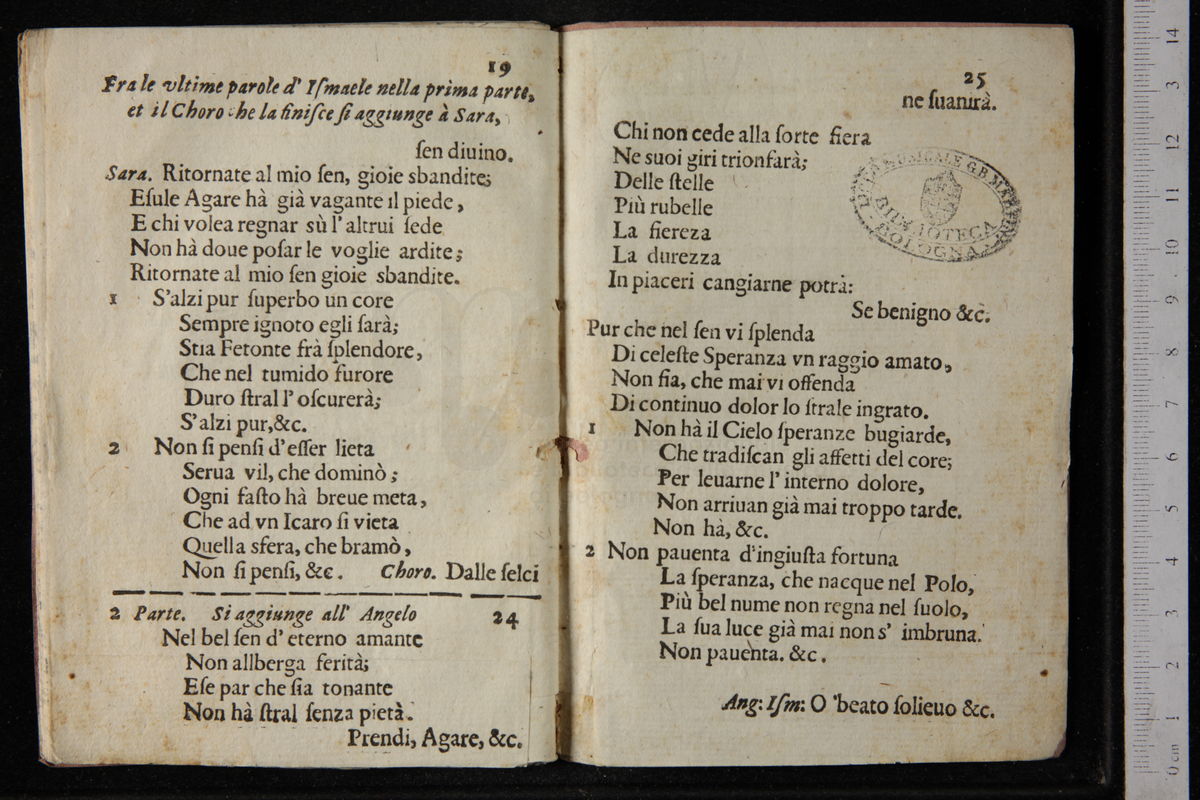 19
Fra le vltime parole d' Iſmaele nella prima parte,
et il Choro che la finiſce ſi aggiunge à Sara,
ſen diuino.
Sara. Ritornate al mio ſen, gioie sbandite;
Eſule Agare hà già vagante il piede,
E chi volea regnar sù l' altrui ſede
Non hà doue poſar le voglie ardite;
Ritornate al mio ſen gioie sbandite.
1 S'alzi pur ſuperbo un core
Sempre ignoto egli ſarà;
Stia Fetonte frà ſplendore,
Che nel tumido furore
Duro ſtral l' oſcurerà;
S'alzi pur,&c.
2 Non ſi penſi d' eſſer lieta
Serua vil, che dominò;
Ogni faſto hà breue meta,
Che ad vn Icaro ſi vieta
Quella sfera, che bramò,
Non ſi penſi, &c. Choro. Dalle ſelci
2 Parte. Si aggiunge all' Angelo 24
Nel bel ſen d' eterno amante
Non allberga ferità;
Eſe par che ſia tonante
Non hà ſtral ſenza pietà.
Prendi, Agare, &c.
25
ne ſuanirà.
Chi non cede alla ſorte fiera
Ne suoi giri trionfarà;
Delle ſtelle
Più rubelle
La fiereza
La durezza
In piaceri cangiarne potrà:
Se benigno &c.
Pur che nel ſen vi ſplenda
Di celeſte Speranza vn raggio amato,
Non fia, che mai vi offenda
Di continuo dolor lo ſtrale ingrato.
1 Non hà il Cielo ſperanze bugiarde,
Che tradiſcan gli affetti del core;
Per leuarne l' interno dolore,
Non arriuan già mai troppo tarde.
Non hà, &c.
2 Non pauenta d'ingiuſta fortuna
La ſperanza, che nacque nel Polo,
Più bel nume non regna nel ſuolo,
La ſua luce già mai non s' imbruna.
Non pauenta. &c.
Ang: Iſm: O beato ſolieuo &c.
MUSICALE G.B. MARTINI
BIBLIOTECA
BOLOGNA
0 cm 1 2 3 4 5 6 7 8 9 10 11 12 13 14